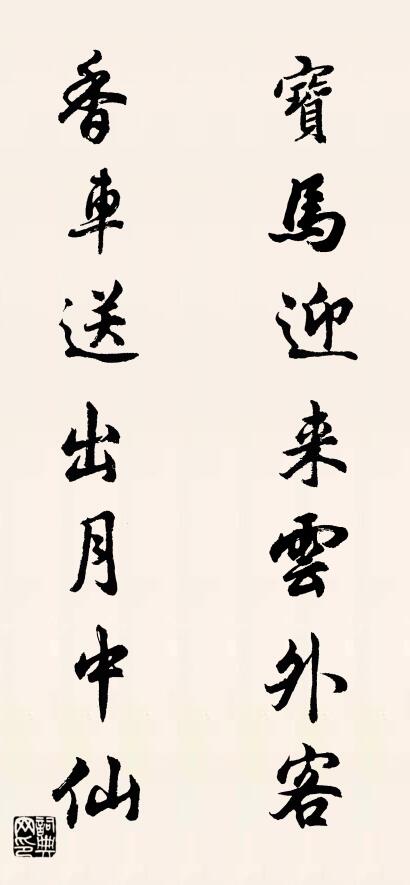 寶馬迎来雲外客
香車送出月中仙
詞典网印